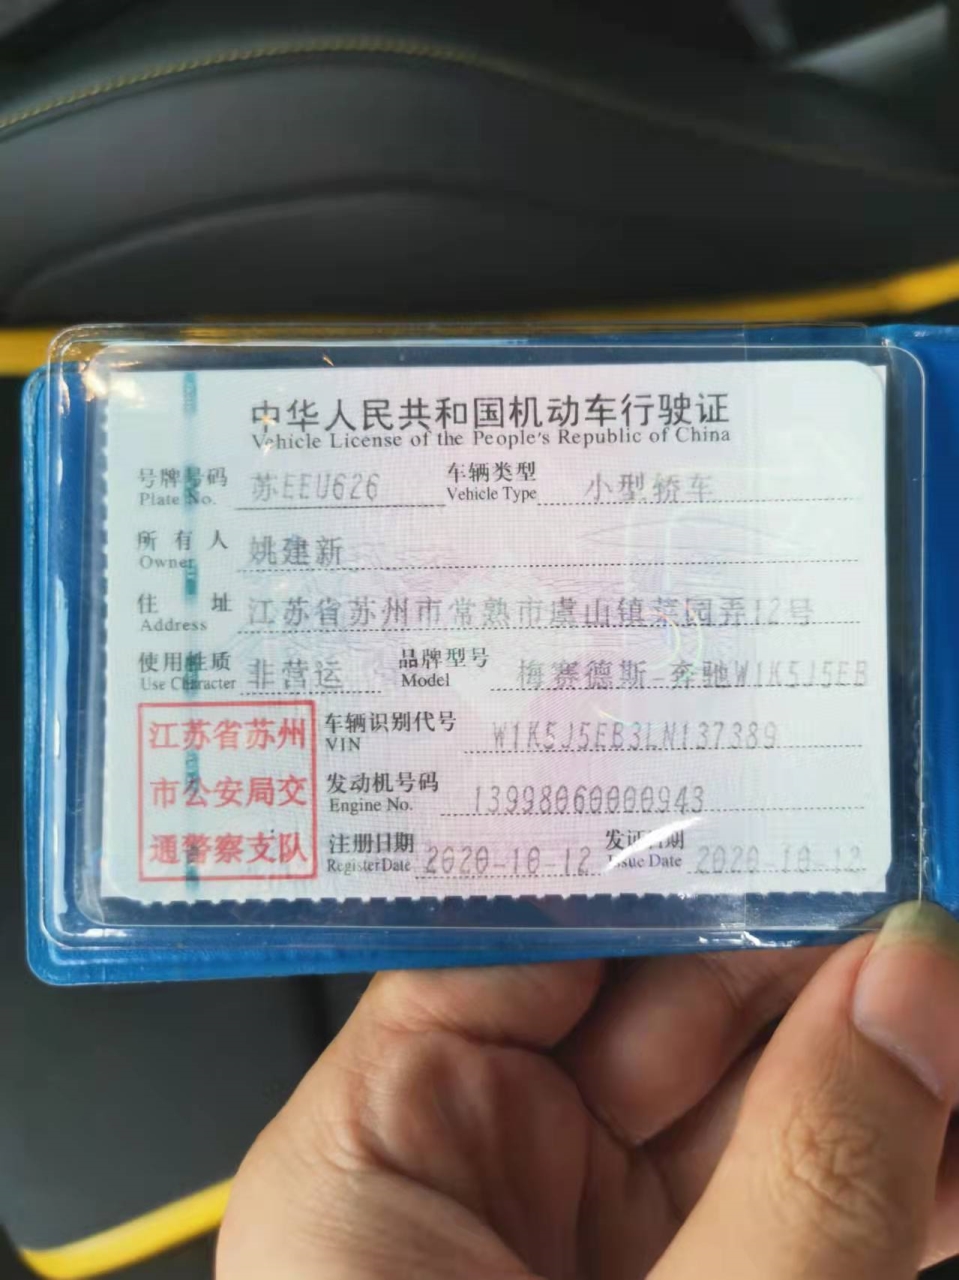 中华人民共和国机动车行驶证
Vehicle License of the People's Republic of China
号牌号码 苏EEU626 车辆类型 小型轿车
Plate No. Vehicle Type
所有人 姚建新
Owner
住址 江苏省苏州市常熟市虞山镇菜园弄12号
Address
使用性质 非营运 品牌型号 梅赛德斯-奔驰W1K5J5EB
Use Character Model
江苏省苏州
市公安局交
通警察支队
车辆识别代号 W1K5J5EB3LN137389
VIN
发动机号码 13998060000943
Engine No.
注册日期 2020-10-12 发证日期 2020-10-12
Register Date Issue Date